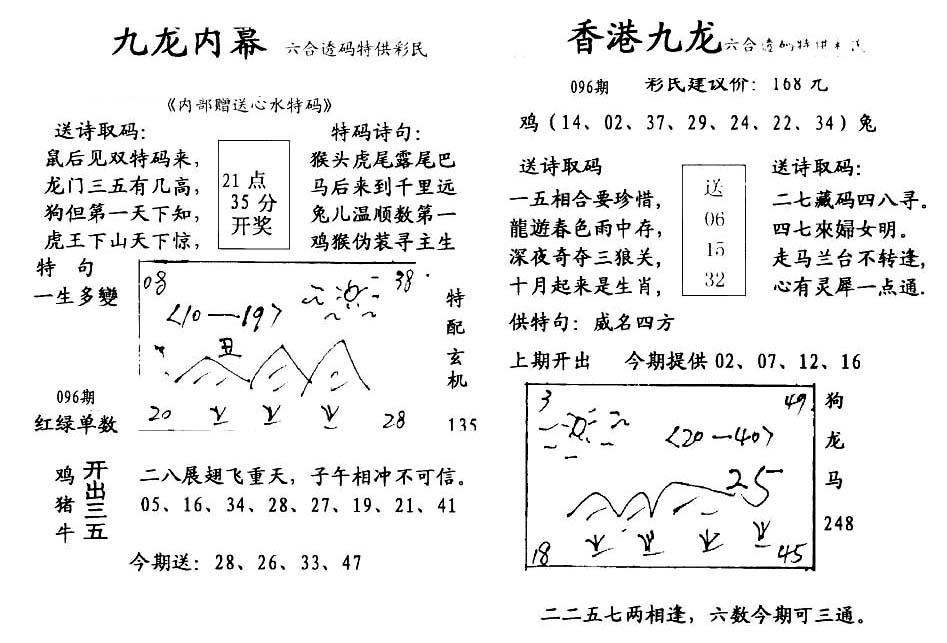 九龙内幕 六合透码特供彩民
《内部赠送心水特码》
送诗取码：
鼠后见双特码来，
龙门三五有几高，
狗但第一天下知，
虎王下山天下惊，
21点
35分
开奖
特码诗句：
猴头虎尾露尾巴
马后来到千里远
兔儿温顺数第一
鸡猴伪装寻主生
特 句
一生多變
096期
红绿单数
38
〈10—19〉
丑
20
28
特
配
玄
机
135
鸡
猪
牛
开出三五
二八展翅飞重天，子午相冲不可信。
05、16、34、28、27、19、21、41
今期送：28、26、33、47
香港九龙 六合透码特供彩民
096期 彩民建议价：168元
鸡（14、02、37、29、24、22、34）兔
送诗取码
一五相合要珍惜，
龍遊春色雨中存，
深夜奇夺三狼关，
十月起来是生肖，
送
06
15
32
送诗取码：
二七藏码四八寻。
四七來婦女明。
走马兰台不转逢，
心有灵犀一点通.
供特句：威名四方
上期开出 今期提供 02、07、12、16
3
49
〈20—40〉
25
18
45
狗
龙
马
248
二二五七两相逢，六数今期可三通。